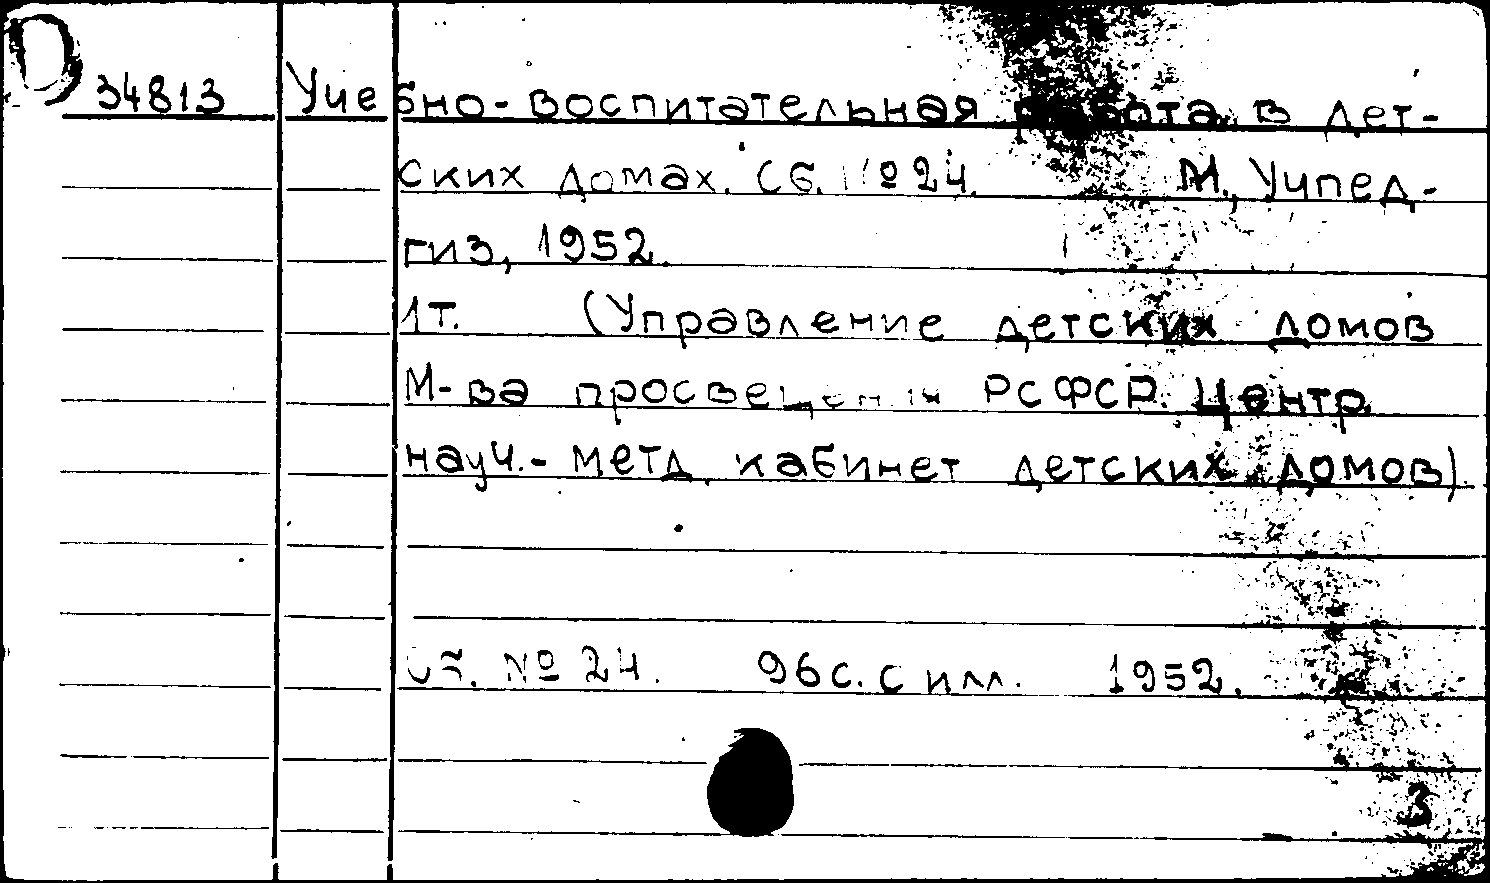 D 34813 Учебно-воспитательная работа в дет-
ских домах. Сб. №24. М., Учпед-
гиз, 1952.
1т. (Управление детских домов
М-ва просвещения РСФСР. Центр.
науч.-метд. кабинет детских домов)
Сб. №24. 96с. с илл. 1952.
3